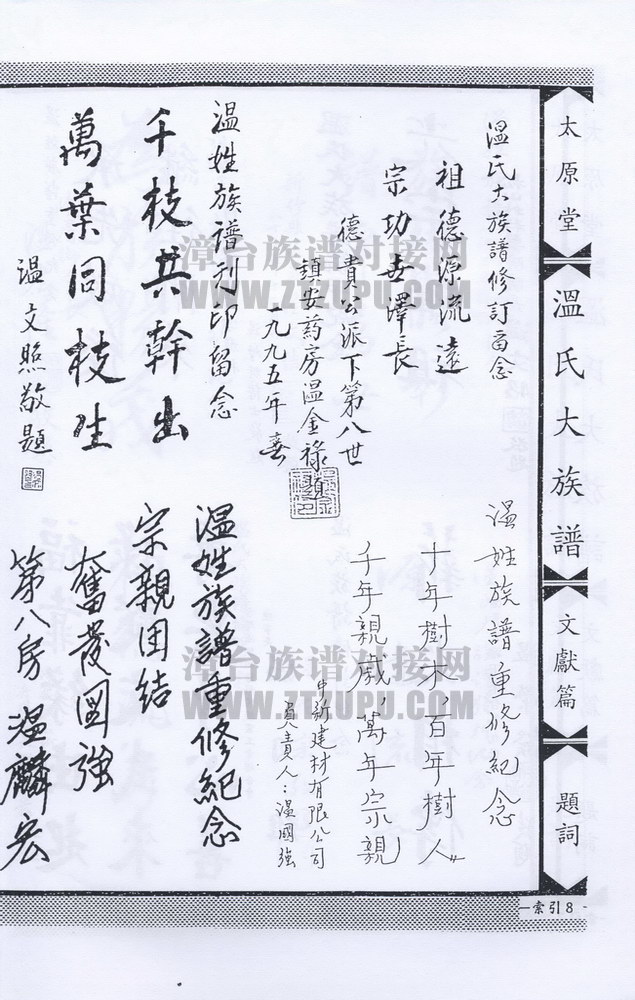 太原堂
溫氏大族譜
文獻篇
題詞
索引8
温氏大族譜修訂留念
祖德源流遠
宗功世澤長
德貴公派下第八世
鎮安葯房温金祿題
一九九五年春
温姓族譜刊印留念
千枝共幹出
萬葉同枝生
温文照敬題
温姓族譜重修紀念
十年樹木，百年樹人"
千年親戚，萬年宗親
有限公司
負責人：温國強
温姓族譜重修紀念
宗親团结
奮發図強
第八房 温麟宏
漳台族谱对接网
WWW.ZTZUPU.COM
漳台族谱对接网
WWW.ZTZUPU.COM